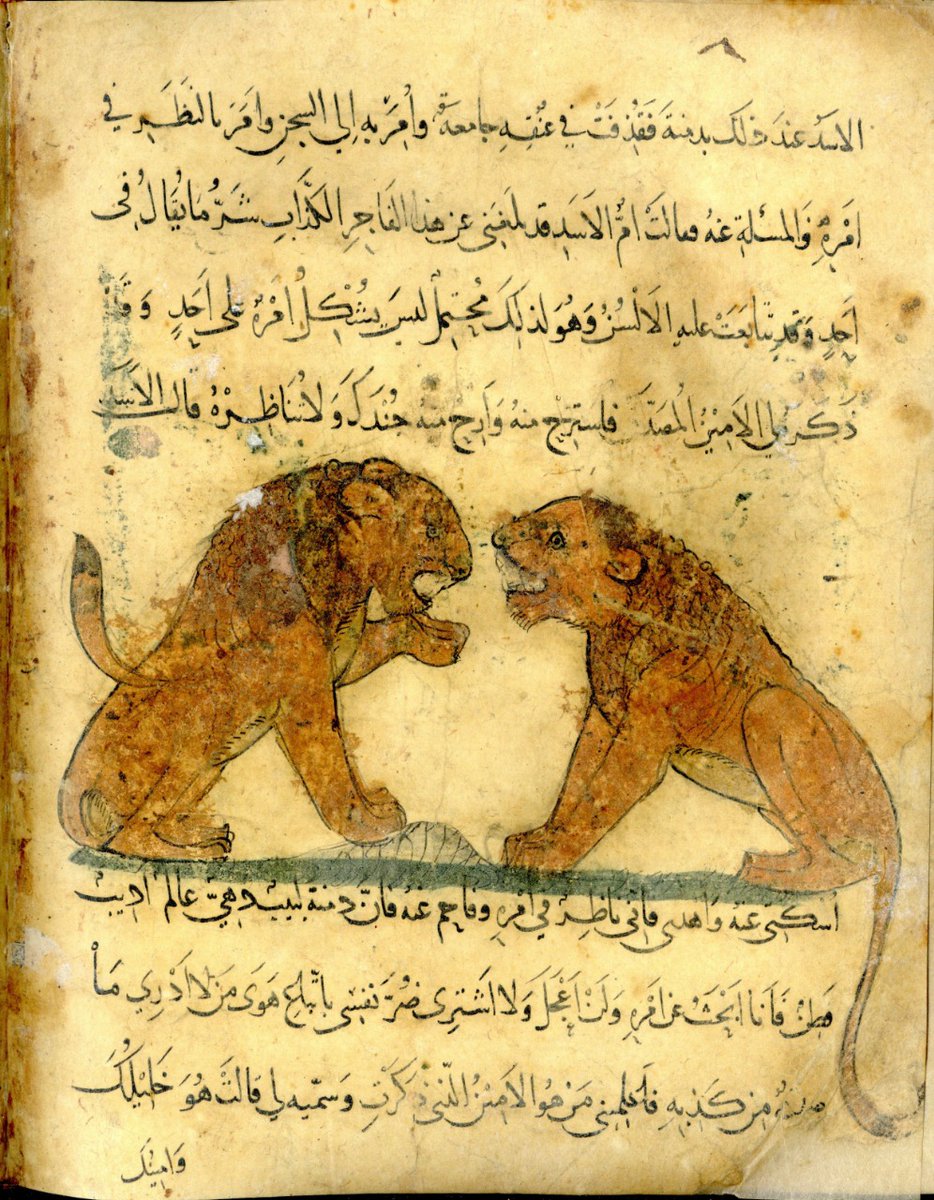 الاسد عند ذلك بدمنة فقذفت في عنقه جامعة وامر به الي السجن وامر بالنظر في
امره والمسئلة عنه فقالت ام الاسد قد بلغني عن هذا الفاجر الكذاب شر ما يقال في
احد وقد تتابعت عليه الالسن وهو لذلك محتمل ليس يشكل امره على احد وقد
ذكر لي الامين المصدق فاسترح منه وارح منه جندك ولا تناظره قالت الاسد
اسكتي عنه واهدى فاني ناظر في امره وفاحص عنه فان دمنة لبيب دهي عالم اديب
فطن فانا ابحث عن امره ولن اعجل ولا اشتري ضر نفسي باتباع هوى من لا ادري ما
صدقه من كذبه فاعلميني من هو الامين الذي ذكرت وسميه لي قالت هو خليلك
وامينك